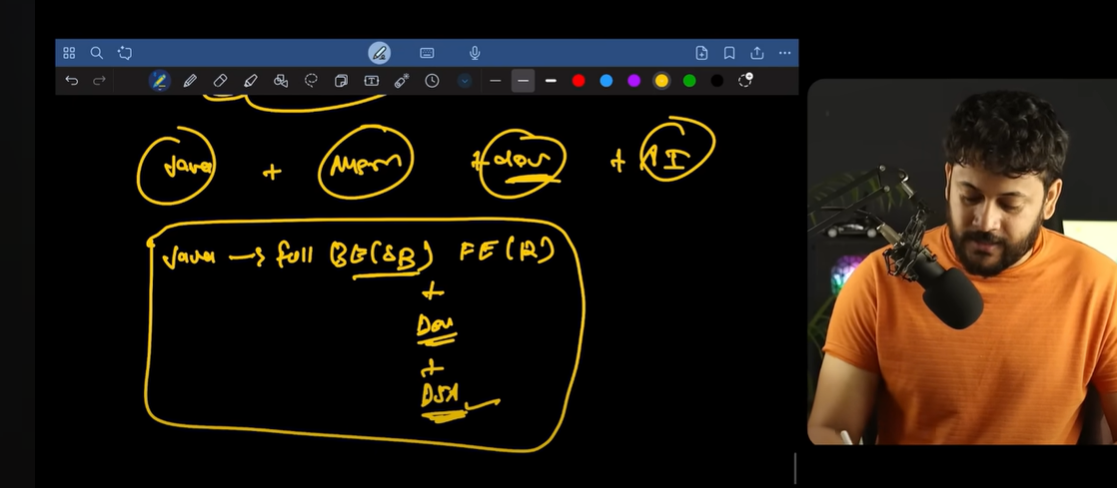 Java + MERN + dev + AI
Java → full BE(SB) FE(R)
+
Dev
+
DSA